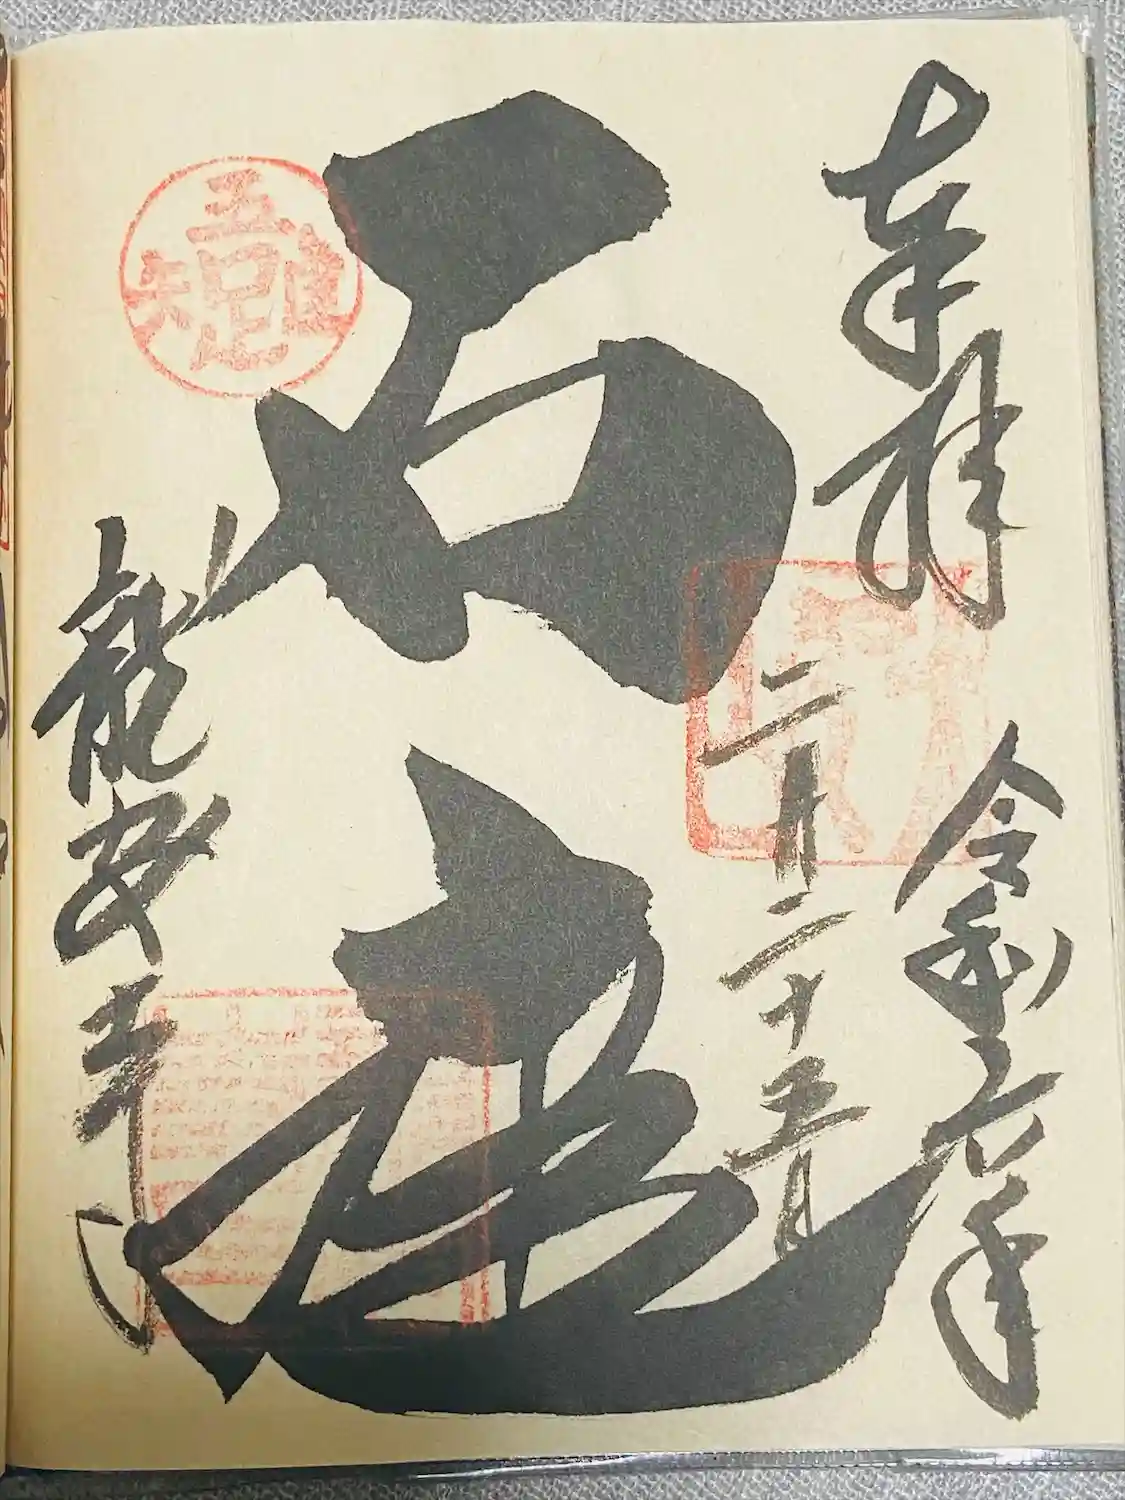 奉拝
令和六年
二月二十五日
石庭
龍安寺
吾唯足知